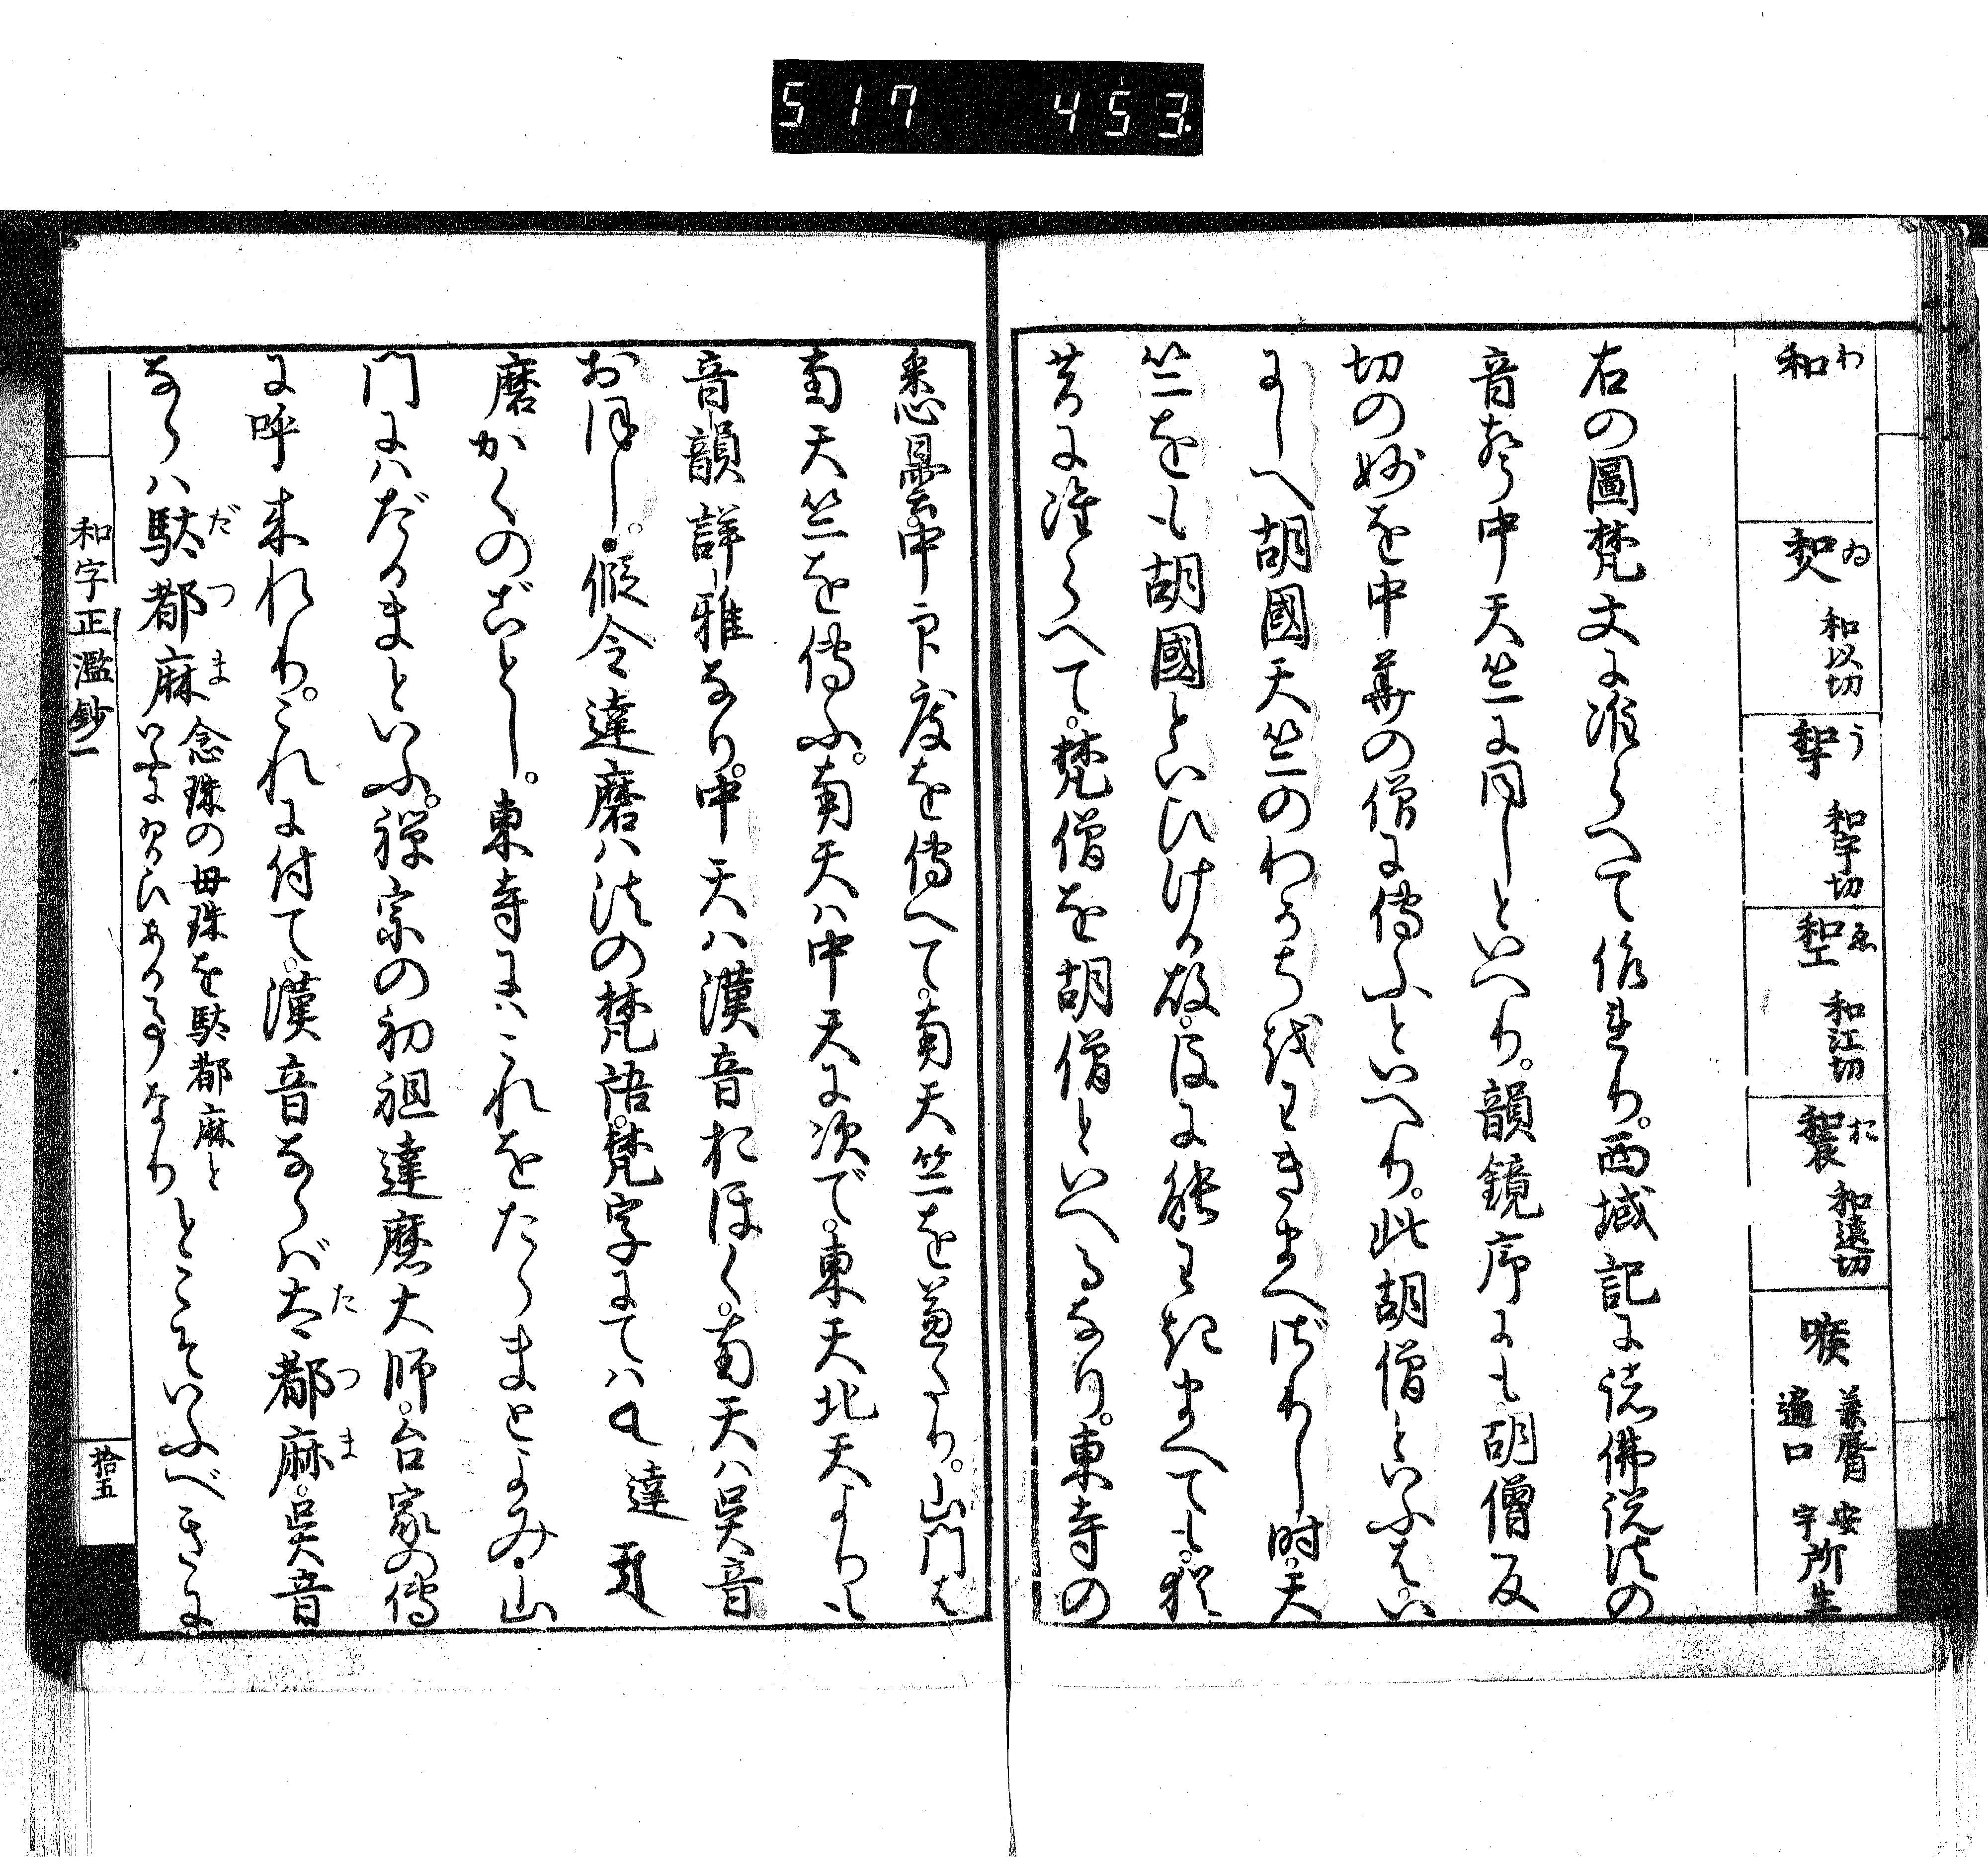 517 453
わ 和
ゐ 和以切
う 和宇切
ゑ 和江切
お 和遠切
喉 兼唇 遍口 安字所生
右の圖梵文に准らへて作れり。西域記に諸佛説法の
音聲中天竺に同しといへり。韻鏡序にも胡僧反
切の妙を中華の僧に傳ふといへり。此胡僧といふはい
にしへ胡國天竺のわかち能わきまへざりし時。天
竺をも胡國といひける故。後に能わきまへても。猶
昔に准らへて。梵僧を胡僧といへるなり。東寺の
悉曇中印度を傳へて。南天竺を兼たり。山門は
南天竺を傳ふ。南天ハ中天に次で。東天北天よりも
音韻詳雅なり。中天ハ漢音おほく。南天ハ呉音
おほし。假令達磨ハ法の梵語。梵字にてハ 達
磨かくのごとし。東寺にハこれをたらまとよみ。山
門にハだるまといふ。禪宗の初祖達磨大師。台家の傳
に呼来れり。これに付て。漢音ならば太都麻。呉音
たつま
ならハ駄都麻 念珠の母珠を駄都麻と
だつま
いふに習ひある事なり とこそいふべきに
和字正濫鈔一
拾五